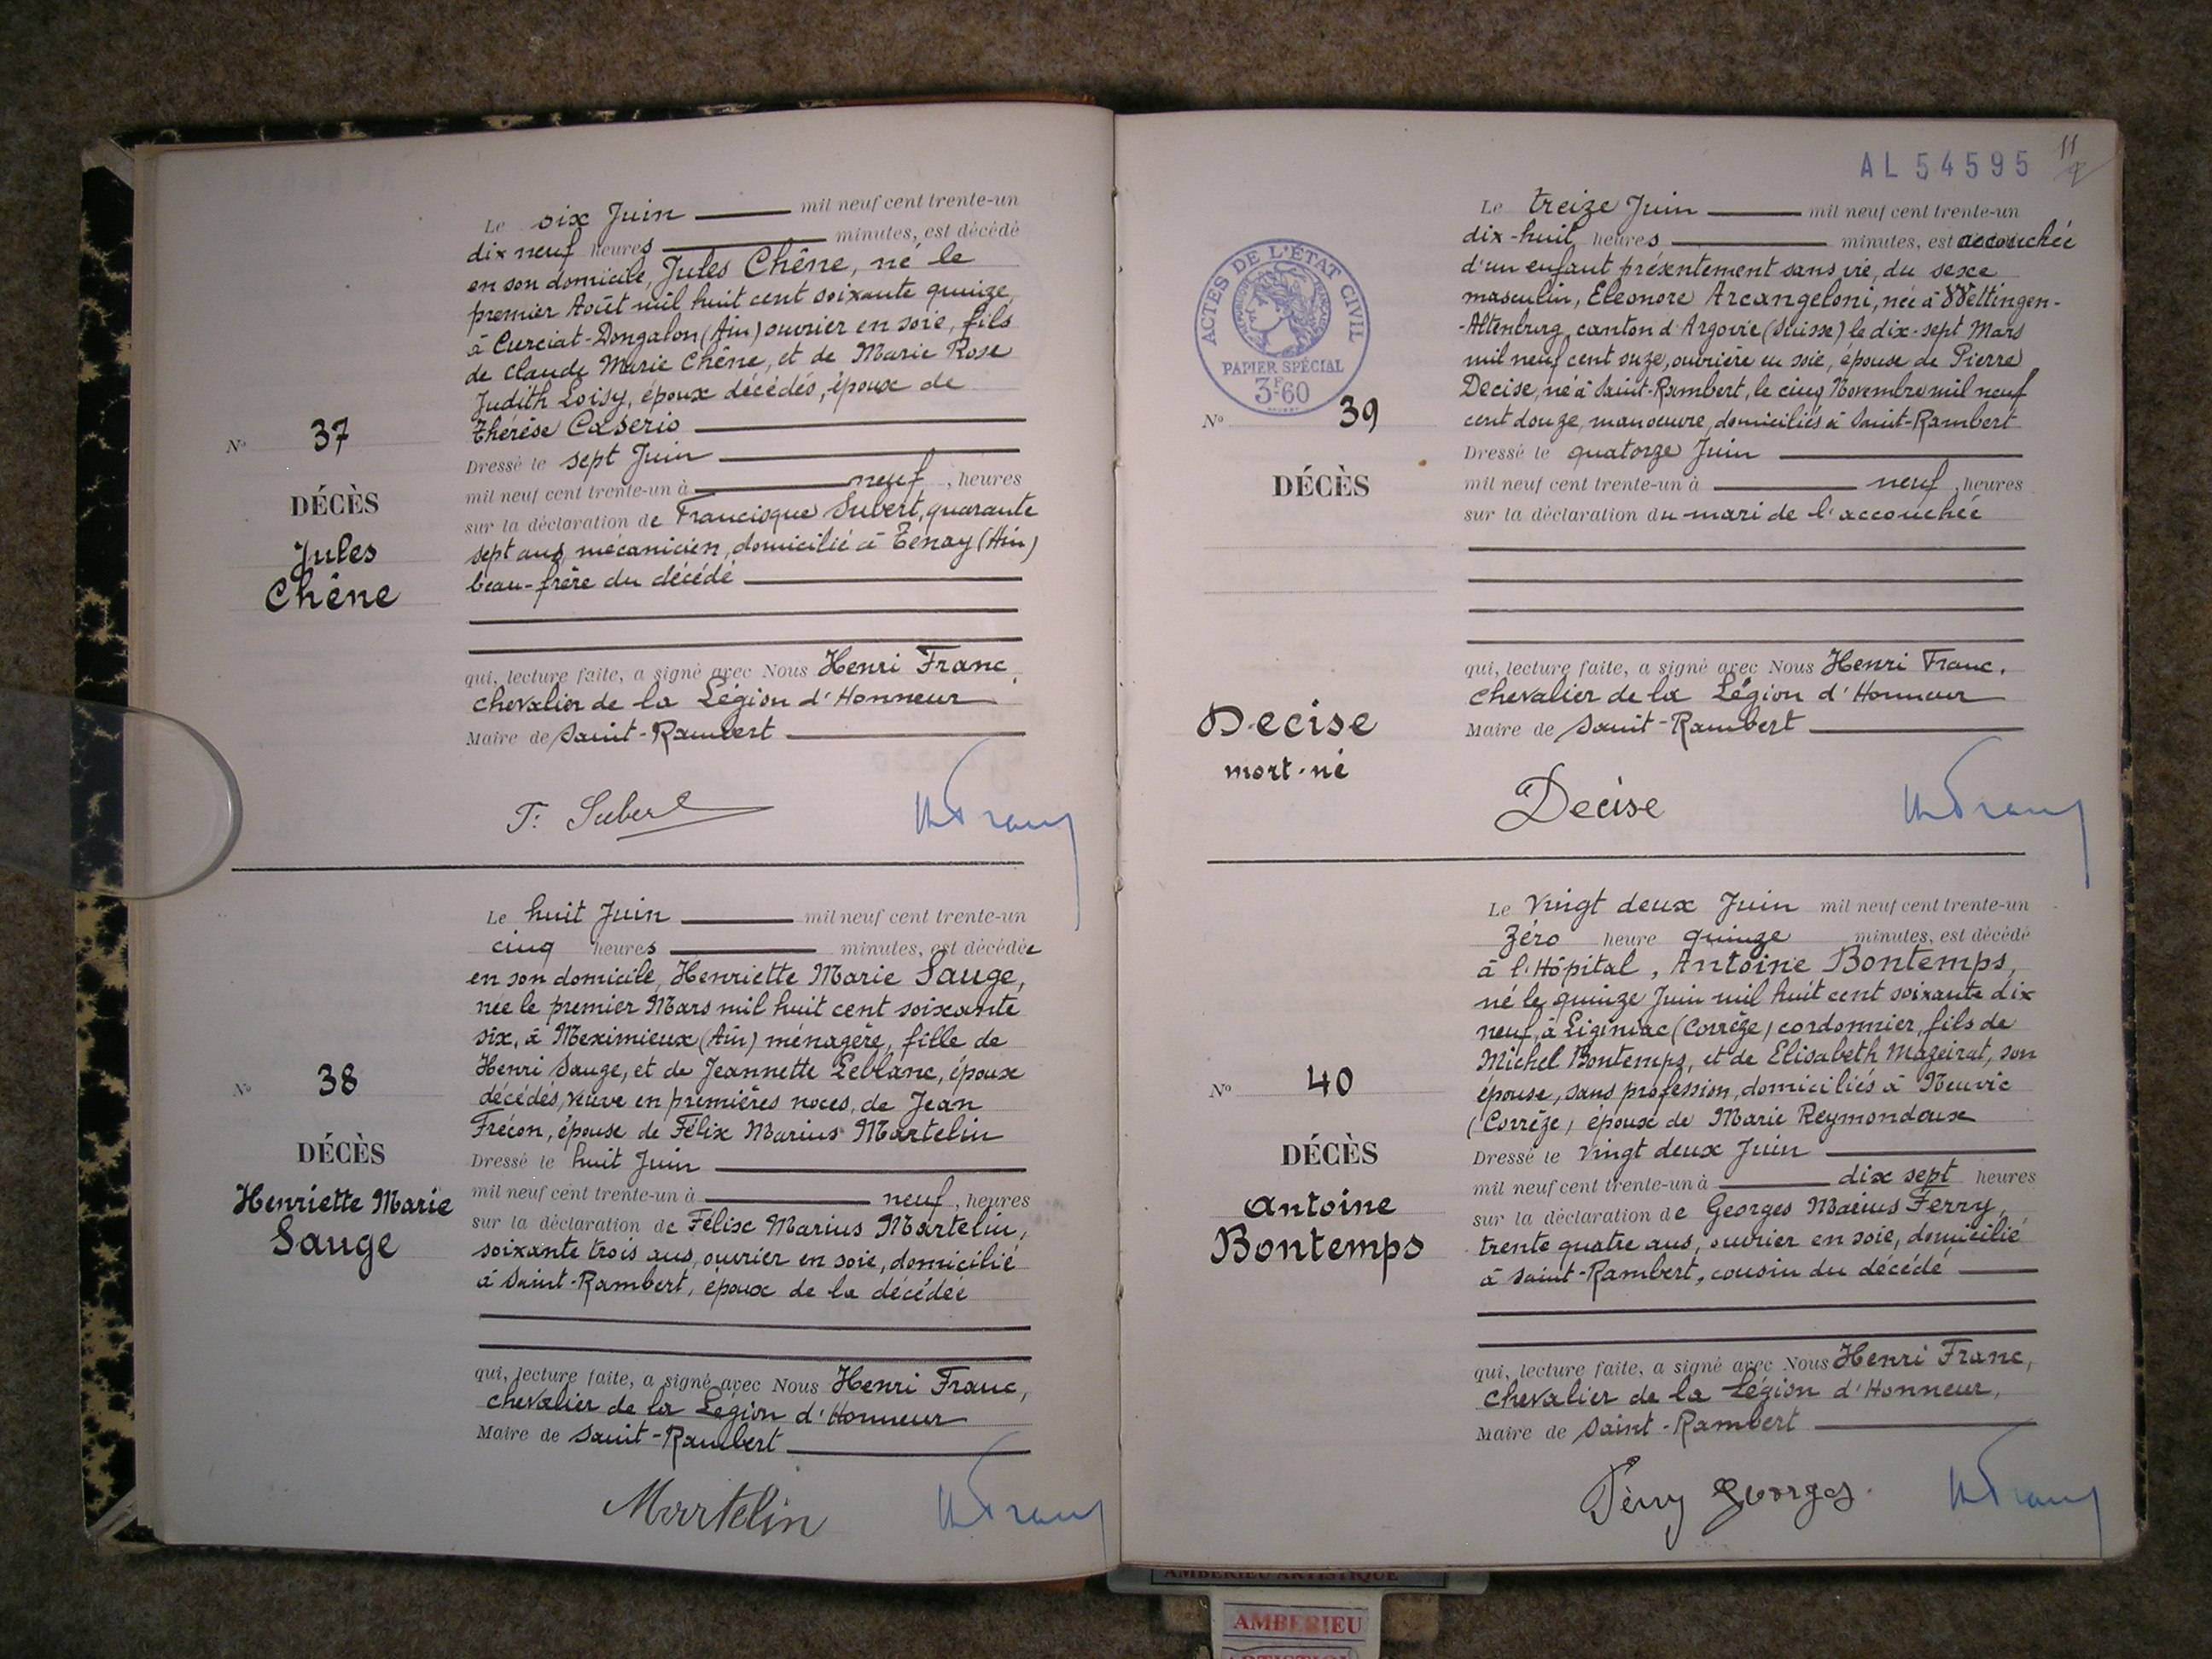 N° 37
DÉCÈS
Jules
Chêne
Le six Juin mil neuf cent trente-un
dix neuf heures minutes, est décédé
en son domicile, Jules Chêne, né le
premier Août mil huit cent soixante quinze,
à Curciat-Dongalon (Ain) ouvrier en soie, fils
de Claude Marie Chêne, et de Marie Rose
Judith Loisy, époux décédés, époux de
Thérèse Caserio
Dressé le sept Juin
mil neuf cent trente-un à neuf, heures
sur la déclaration de Francisque Subert, quarante
sept ans, mécanicien, domicilié à Tenay (Ain)
beau-frère du décédé
qui, lecture faite, a signé avec Nous Henri Franc,
chevalier de la Légion d'Honneur
Maire de Saint-Rambert
F. Subert
N° 38
DÉCÈS
Henriette Marie
Sauge
Le huit Juin mil neuf cent trente-un
cinq heures minutes, est décédée
en son domicile, Henriette Marie Sauge,
née le premier Mars mil huit cent soixante
six, à Meximieux (Ain) ménagère, fille de
Henri Sauge, et de Jeannette Leblanc, époux
décédés, veuve en premières noces, de Jean
Frécon, épouse de Félix Marius Martelin
Dressé le huit Juin
mil neuf cent trente-un à neuf, heures
sur la déclaration de Félix Marius Martelin,
soixante trois ans, ouvrier en soie, domicilié
à Saint-Rambert, époux de la décédée
qui, lecture faite, a signé avec Nous Henri Franc,
chevalier de la Légion d'Honneur
Maire de Saint-Rambert
Martelin
AL 54595
11
ACTES DE L'ÉTAT CIVIL
RÉPUBLIQUE FRANÇAISE
PAPIER SPÉCIAL
3F60
N° 39
DÉCÈS
Decise
mort-né
Le treize Juin mil neuf cent trente-un
dix-huit heures minutes, est accouchée
d'un enfant présentement sans vie, du sexe
masculin, Eleonore Arcangeloni, née à Wettingen-
-Altenburg, canton d'Argovie (Suisse) le dix-sept Mars
mil neuf cent onze, ouvrière en soie, épouse de Pierre
Decise, né à Saint-Rambert, le cinq Novembre mil neuf
cent douze, manoeuvre, domiciliés à Saint-Rambert
Dressé le quatorze Juin
mil neuf cent trente-un à neuf, heures
sur la déclaration du mari de l'accouchée
qui, lecture faite, a signé avec Nous Henri Franc,
chevalier de la Légion d'Honneur
Maire de Saint-Rambert
Decise
N° 40
DÉCÈS
Antoine
Bontemps
Le vingt deux Juin mil neuf cent trente-un
zéro heure quinze minutes, est décédé
à l'Hôpital, Antoine Bontemps,
né le quinze Juin mil huit cent soixante dix
neuf, à Liginiac (Corrèze) cordonnier, fils de
Michel Bontemps, et de Elisabeth Mazeirat, son
épouse, sans profession, domiciliés à Neuvic
(Corrèze) époux de Marie Reymondoux
Dressé le vingt deux Juin
mil neuf cent trente-un à dix sept heures
sur la déclaration de Georges Marius Ferry,
trente quatre ans, ouvrier en soie, domicilié
à Saint-Rambert, cousin du décédé
qui, lecture faite, a signé avec Nous Henri Franc,
chevalier de la Légion d'Honneur,
Maire de Saint-Rambert
Georges
AMBERIEU ARTISTIQUE
AMBERIEU